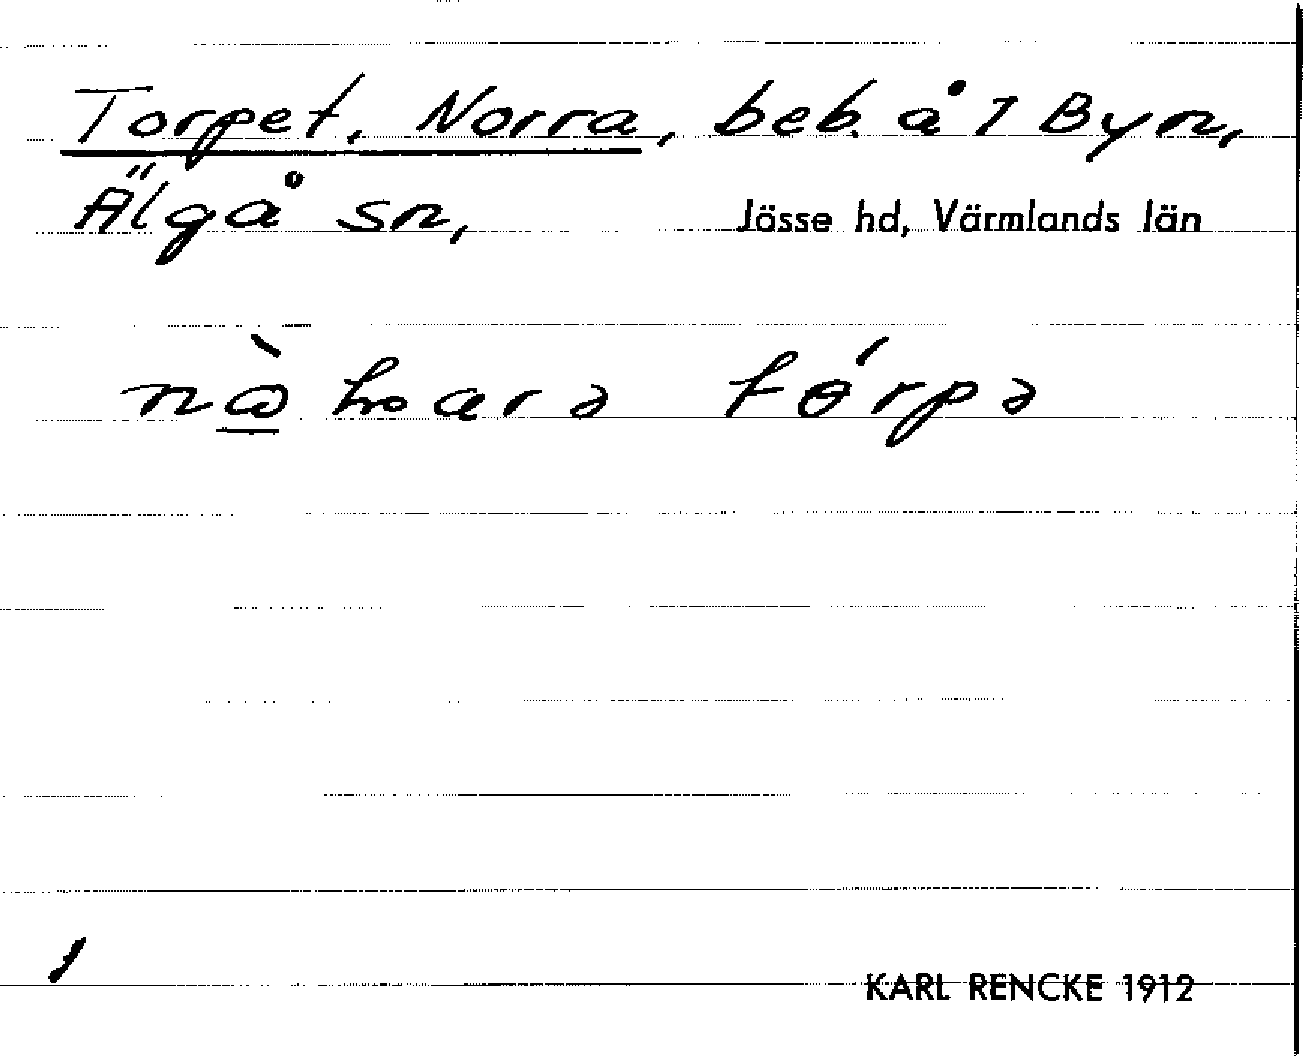 Torpet, Norra, beb. å 1 Byn,
Älgå sn, Jösse hd, Värmlands län
tórpə
KARL RENCKE 1912